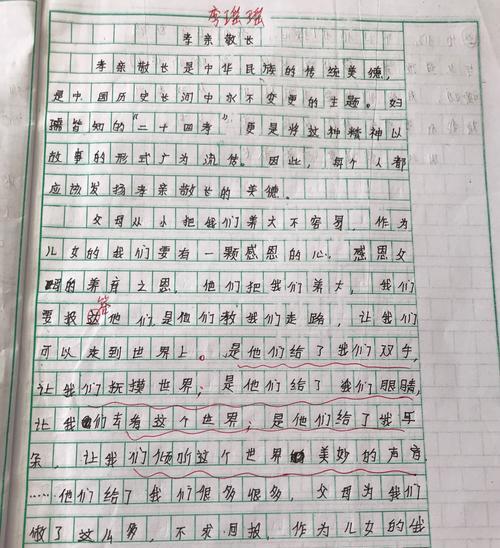 李瑶瑶
孝亲敬长
孝亲敬长是中华民族的传统美德，
是中国历史长河中永不变更的主题。妇
孺皆知的“二十四孝”更是将这种精神以
故事的形式广为流传。因此，每个人都
应该发扬孝亲敬长的美德。
父母从小把我们养大不容易，作为
儿女的我们要有一颗感恩的心。感恩父
母的养育之恩，他们把我们养大，我们
要报答他们是他们教我们走路，让我们
可以来到世界上。是他们给了我们双手，
让我们抚摸世界；是他们给了我们眼睛，
让我们去看这个世界；是他们给了我
，让我们倾听这个世界美妙的声音
……他们给了我们很多很多，父母为我们
做了这么多，不求回报，作为儿女的我